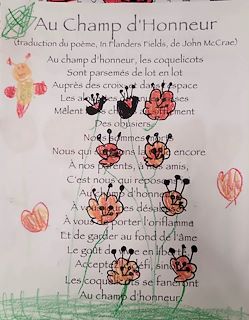 Au Champ d'Honneur
(traduction du poème, In Flanders Fields, de John McCrae)
Au champ d'honneur, les coquelicots
Sont parsemés de lot en lot
Auprès des croix espace
Les
Mêlent
Des obusiers
Nous sommes
Nous qui encore
À nos parents, à nos amis,
C'est nous qui reposons
Au champ d'honneur
À vous
À vous porter l'oriflamme
Et de garder au fond de l'âme
Le goût de en liberté
Acceptez défi, sinon
Les coquelicots se faneront
Au champ d'honneur